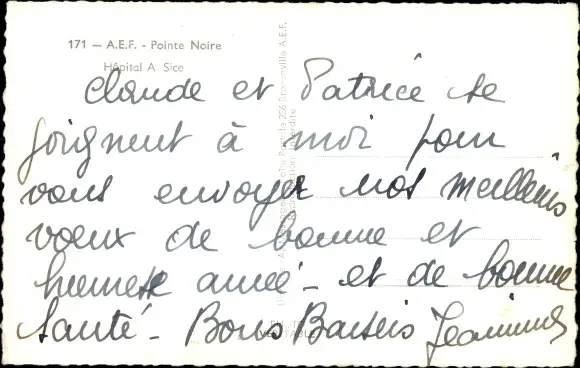 171 — A.E.F. - Pointe Noire
Hôpital A Sice
Claude et Patrice se
joignent à moi pour
vous envoyer nos meilleurs
vœux de bonne et
heureuse année - et de bonne
santé - Bons Baisers Jeannine